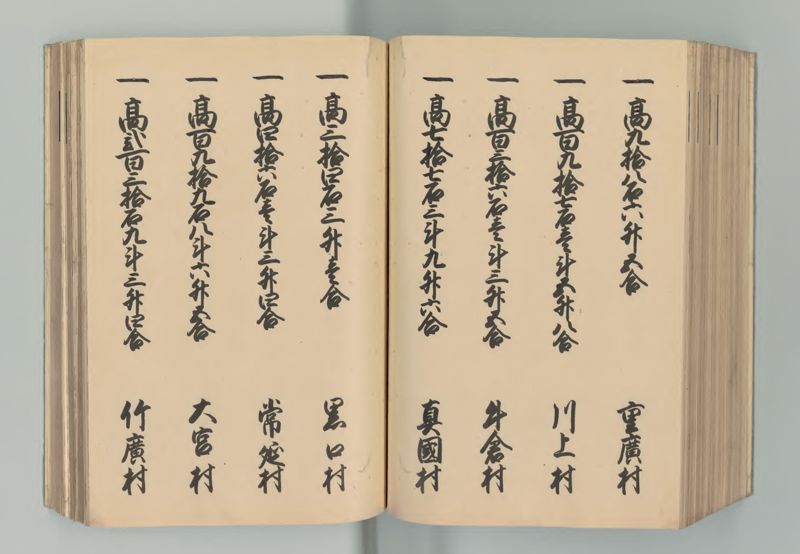 一 高九拾八石六升五合 重廣村
一 高百九拾七石壱斗五升八合 川上村
一 高百三拾六石壱斗三升五合 舛倉村
一 高七拾七石三斗九升六合 真國村
一 高三拾四石三升壱合 黒口村
一 高四拾六石壱斗三升四合 常延村
一 高百九拾九石八斗六升五合 大宮村
一 高弐百三拾石九斗三升四合 竹廣村